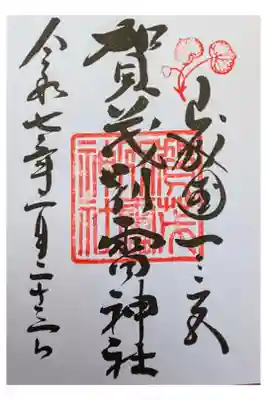 山城國一之宮
賀茂別雷神社
令和七年一月二十三日